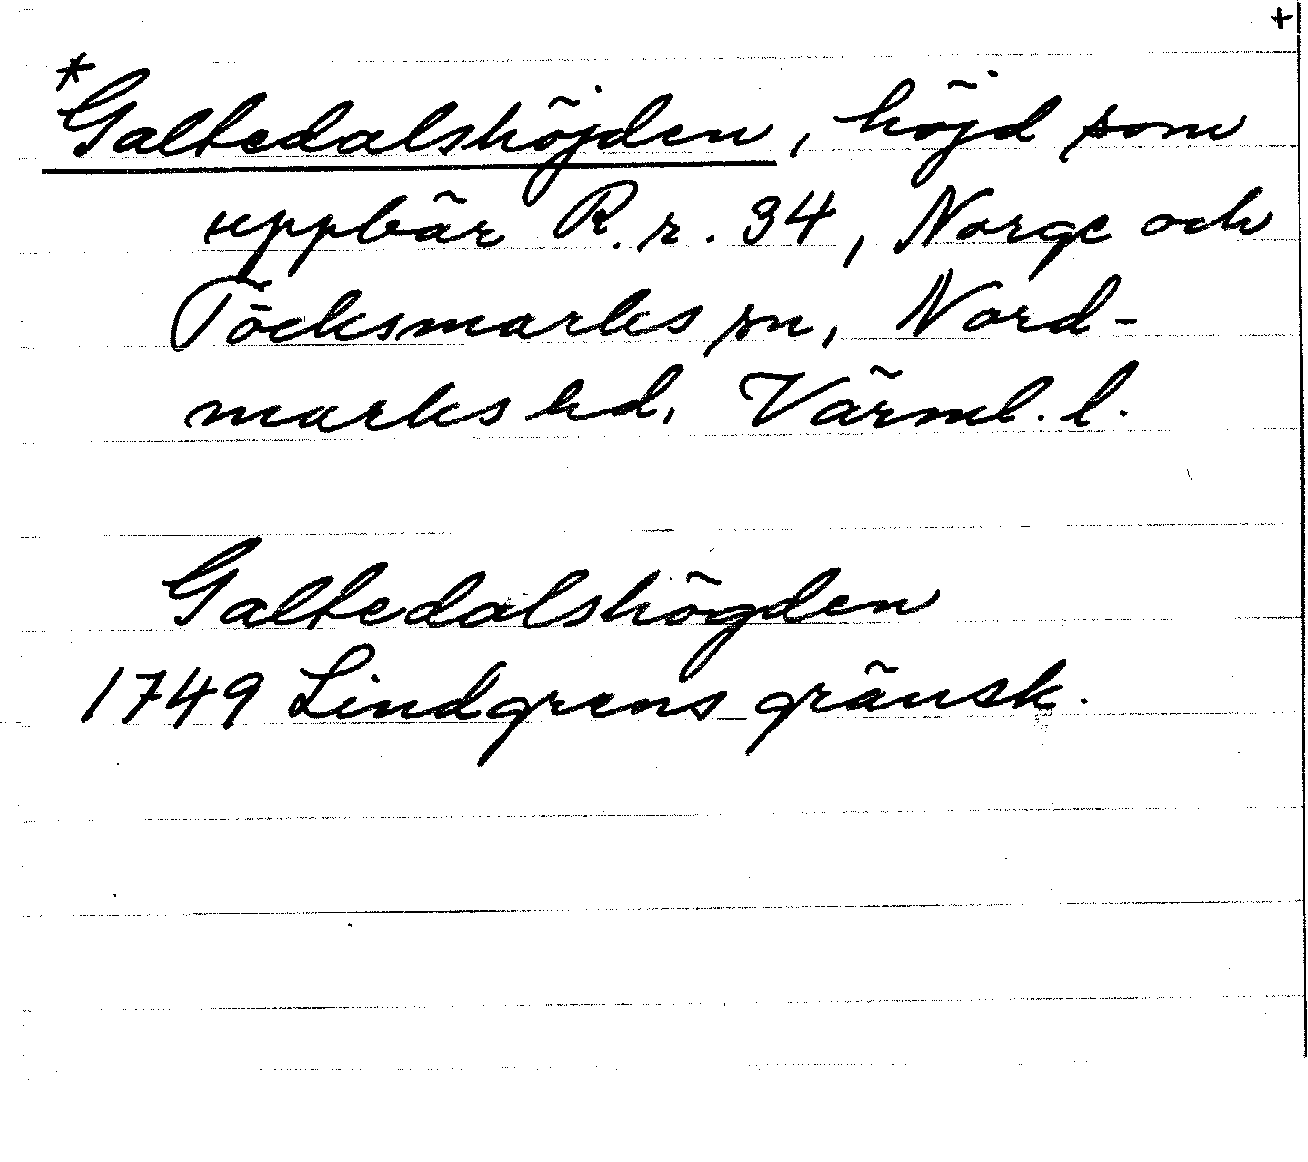 +
*Galtedalshöjden, höjd som
uppbär R.r. 34, Norge och
Töcksmarks sn, Nord-
marks hd, Värml. l.
Galtedalshögden
1749 Lindgrens gränsk.